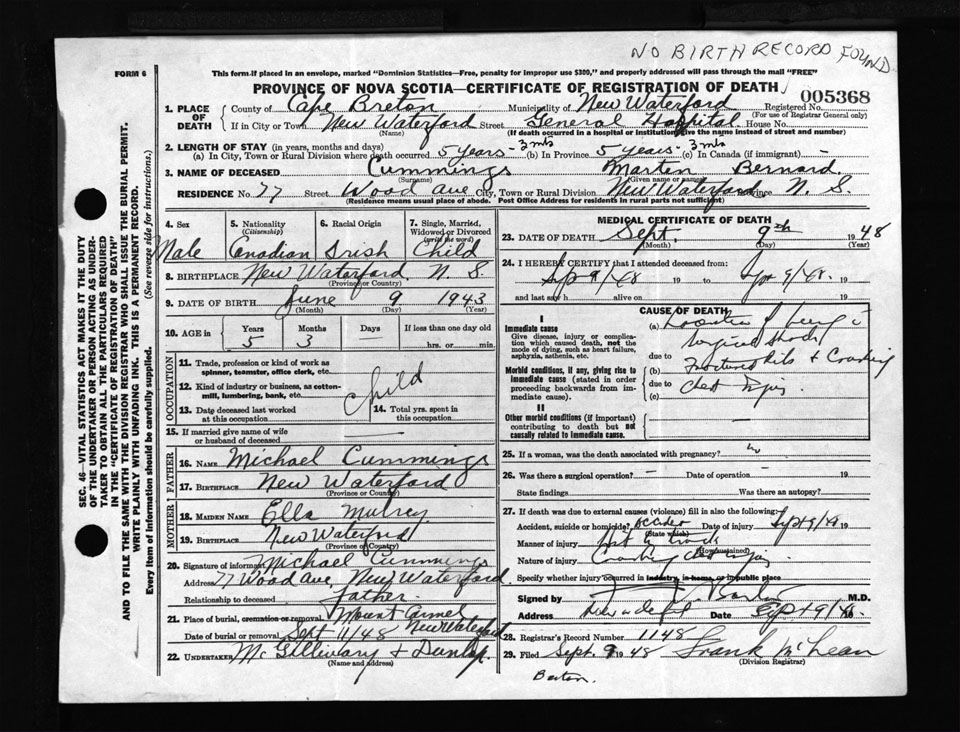 NO BIRTH RECORD FOUND
FORM 6
This form if placed in an envelope, marked "Dominion Statistics—Free, penalty for improper use $300," and properly addressed will pass through the mail "FREE"
PROVINCE OF NOVA SCOTIA—CERTIFICATE OF REGISTRATION OF DEATH
005368
1. PLACE OF DEATH
County of Cape Breton Municipality of New Waterford Registered No.
(For use of Registrar General only)
If in City or Town New Waterford Street General Hospital House No.
(Name) (If death occurred in a hospital or institution give the name instead of street and number)
2. LENGTH OF STAY (in years, months and days)
(a) In City, Town or Rural Division where death occurred 5 years - 3 mts (b) In Province 5 years - 3 mts (c) In Canada (if immigrant) —
3. NAME OF DECEASED Cummings Marten Bernard
(Surname) (Given name or names)
RESIDENCE No. 77 Street Wood Ave City, Town or Rural Division New Waterford Province N. S.
(Residence means usual place of abode. Post Office Address for residents in rural parts not sufficient)
4. Sex
Male
5. Nationality
(Citizenship)
Canadian
6. Racial Origin
Irish
7. Single, Married, Widowed or Divorced
(write the word)
Child
8. BIRTHPLACE New Waterford N. S.
(Province or Country)
9. DATE OF BIRTH June 9 1943
(Month) (Day) (Year)
10. AGE in
Years Months Days If less than one day old
5 3 — hrs. or min.
OCCUPATION
11. Trade, profession or kind of work as spinner, teamster, office clerk, etc.
12. Kind of industry or business, as cotton-mill, lumbering, bank, etc.
Child
13. Date deceased last worked at this occupation
14. Total yrs. spent in this occupation
15. If married give name of wife or husband of deceased —
FATHER
16. NAME Michael Cummings
17. BIRTHPLACE New Waterford
(Province or Country)
MOTHER
18. MAIDEN NAME Ella
19. BIRTHPLACE New Waterford
(Province or Country)
20. Signature of informant Michael Cummings
Address 77 Wood Ave, New Waterford
Relationship to deceased Father
21. Place of burial, cremation or removal Mount Carmel
New Waterford
Date of burial or removal Sept 11/48
22. UNDERTAKER McGillivary & Dunlap
(Name and address)
MEDICAL CERTIFICATE OF DEATH
23. DATE OF DEATH Sept. 9th 1948
(Month) (Day) (Year)
24. I HEREBY CERTIFY that I attended deceased from:
Sep 9/48 19 to Sep 9/48. 19
and last saw h alive on 19
CAUSE OF DEATH
I
Immediate cause
Give disease, injury or complication which caused death, not the mode of dying, such as heart failure, asphyxia, asthenia, etc.
(a) of lung
surgical shock
due to
Morbid conditions, if any, giving rise to immediate cause (stated in order proceeding backwards from immediate cause).
(b) Fractured Ribs & Crushing
due to chest injury
(c)
II
Other morbid conditions (if important) contributing to death but not causally related to immediate cause.
25. If a woman, was the death associated with pregnancy?
26. Was there a surgical operation? — Date of operation — 19
State findings Was there an autopsy?
27. If death due to external causes (violence) fill in also the following:—
Accident, suicide or homicide? Date of injury Sept 9/48 19
(State which)
Manner of injury
(How sustained)
Nature of injury Crushing chest injury
Specify whether injury occurred in industry, in home, or in public place
Signed by M.D.
Address Date Sept 9/48.
28. Registrar's Record Number 1148
29. Filed Sept. 9 1948 Frank McLean
(Division Registrar)
Barton.
SEC. 46—VITAL STATISTICS ACT MAKES IT THE DUTY OF THE UNDERTAKER OR PERSON ACTING AS UNDERTAKER TO OBTAIN ALL THE PARTICULARS REQUIRED IN THE "CERTIFICATE OF REGISTRATION OF DEATH"
AND TO FILE THE SAME WITH THE DIVISION REGISTRAR WHO SHALL ISSUE THE BURIAL PERMIT.
WRITE PLAINLY WITH UNFADING INK. THIS IS A PERMANENT RECORD.
Every item of information should be carefully supplied. (See reverse side for instructions.)